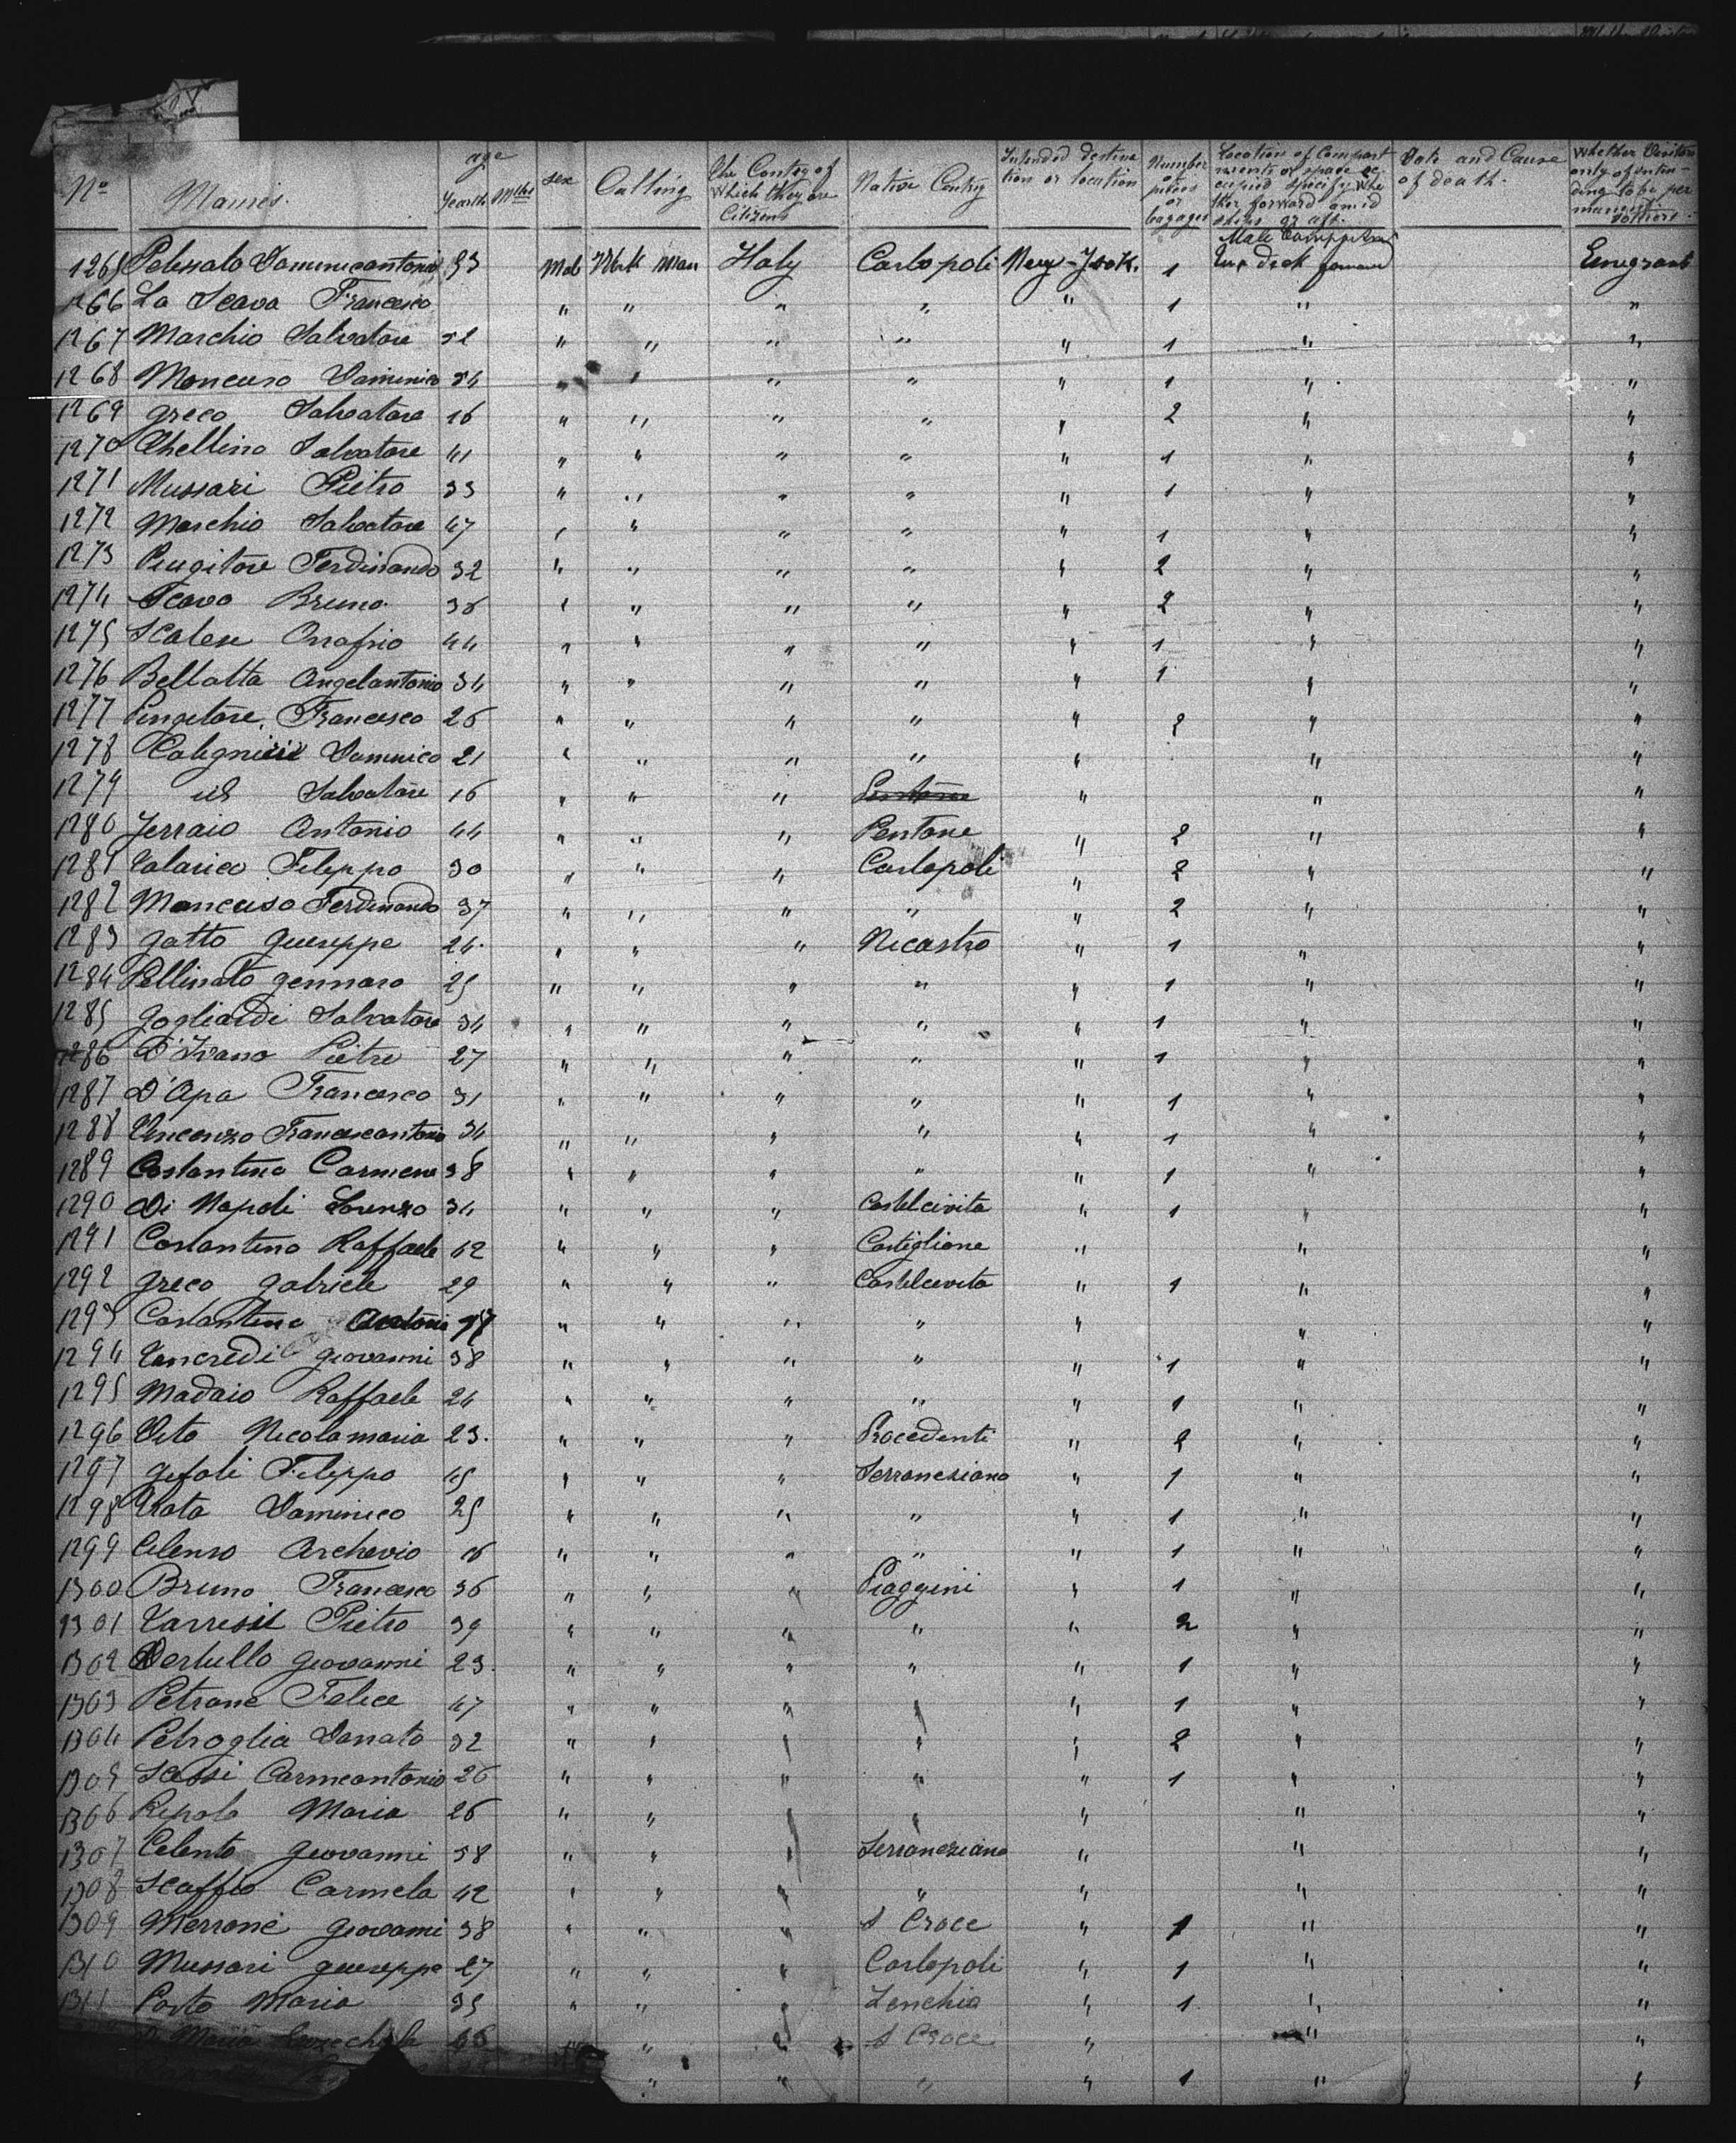 No Names. age Years Mths sex Calling The Contry of Which they are Citizens Native Contry Intended destination or location Number of pieces or bagages Location of Compartments or space occupied specify whether forward amidships or aft. Date and Cause of death. Whether Visitors only of intending to be permanent
1265 Dominicantonio 33 Male Work man Italy Carlopoli New-York. 1 Emigrant
1266 La Scava Francesco " " " " " 1 " "
1267 Marchio Salvatore 32 " " " " " 1 " "
1268 Mancuso Dominico 34 " " " " " 1 " "
1269 Greco Salvatore 16 " " " " " 2 " "
1270 Salvatore 41 " " " " " 1 " "
1271 Mussari Pietro 33 " " " " " 1 " "
1272 Marchio Salvatore 47 " " " " " 1 " "
1273 Ferdinando 32 " " " " " 2 " "
1274 Scavo Bruno 36 " " " " " 2 " "
1275 Scalese Onofrio 44 " " " " " 1 " "
1276 Bellotta Angelantonio 34 " " " " " 1 " "
1277 Pingitore Francesco 26 " " " " " 2 " "
1278 Dominico 21 " " " " " " "
1279 id Salvatore 16 " " " " " "
1280 Antonio 44 " " " Pentone " 2 " "
1281 Talarico Filippo 30 " " " Carlopoli " 2 " "
1282 Mancuso Ferdinando 37 " " " " " 2 " "
1283 Gatto Giuseppe 24 " " " Nicastro " 1 " "
1284 Pellinato Gennaro 25 " " " " " 1 " "
1285 Gogliardi Salvatore 34 " " " " " 1 " "
1286 Pietro 27 " " " " " 1 " "
1287 D'Apa Francesco 31 " " " " " 1 " "
1288 Vincenzo Francescantonio 34 " " " " " 1 " "
1289 Costantino Carmene 38 " " " " " 1 " "
1290 Di Napoli Lorenzo 34 " " " Castelcivita " 1 " "
1291 Costantino Raffaele 42 " " " Castiglione " " "
1292 Greco Gabriele 29 " " " Castelcivita " 1 " "
1293 Costantino Antonio " " " " " " "
1294 Tancredi Giovanni 38 " " " " " 1 " "
1295 Madaio Raffaele 24 " " " " " 1 " "
1296 Vito Nicolamaria 23. " " " Procedenti " 2 " "
1297 Filippo 45 " " " " 1 " "
1298 Dominico 25 " " " " " 1 " "
1299 16 " " " " " 1 " "
1300 Bruno Francesco 36 " " " Piaggini " 1 " "
1301 Pietro 39 " " " " " 2 " "
1302 Giovanni 23. " " " " " 1 " "
1303 Petrone Felice 47 " " " " " 1 " "
1304 Petraglia Donato 32 " " " " " 2 " "
1305 Scassi Carmeantonio 26 " " " " " 1 " "
1306 Maria 26 " " " " " " "
1307 Celento Giovanni 38 " " " " " "
1308 Scaffio Carmela 42 " " " " " " "
1309 Merrone Giovanni 38 " " " S Croce " 1 " "
1310 Mussari Giuseppe 27 " " " Carlopoli " 1 " "
1311 Porto Maria 35 " " " " 1 " "
46 " " S Croce " " "
" " " " 1 " "